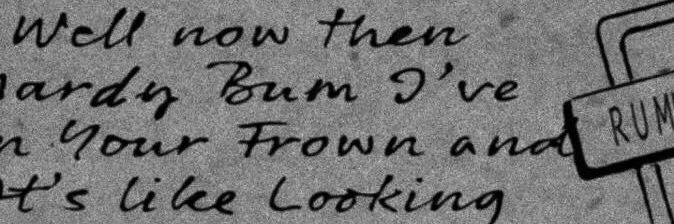 Well now then
ardy Bum I've
n Your Frown and
t's like Looking
RUM